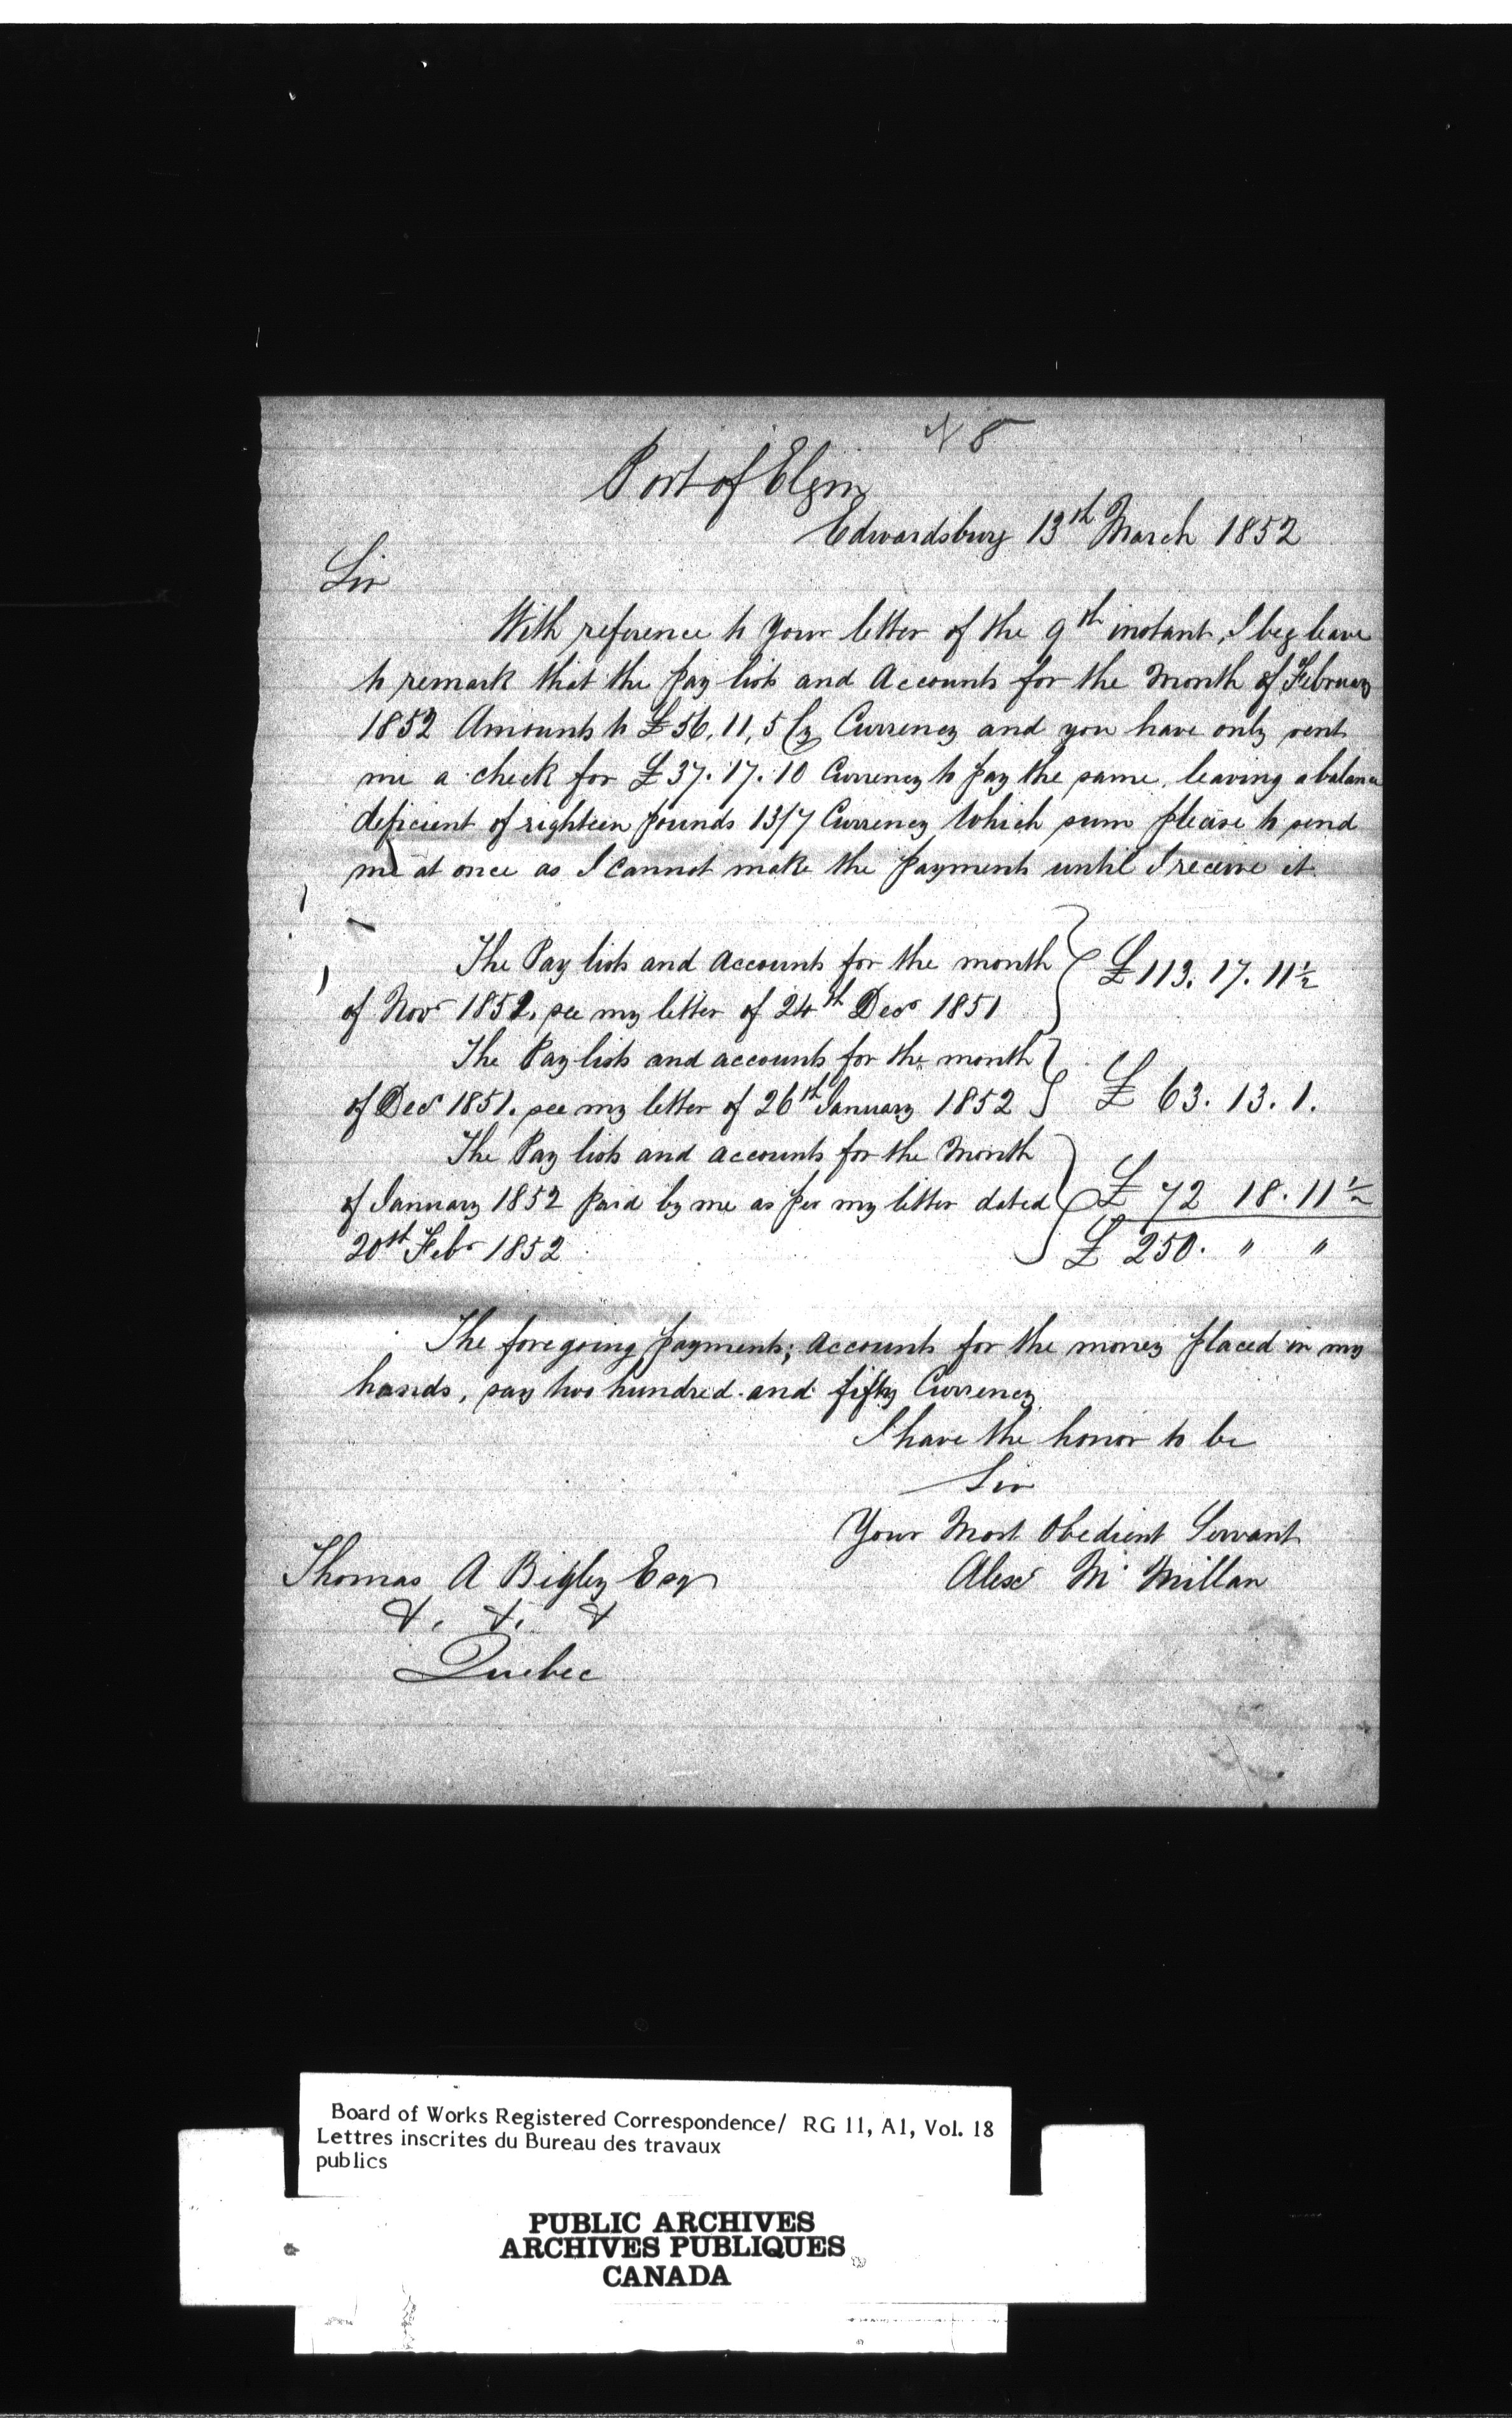 N 8
Port of Elgin
Edwardsburg 13th March 1852
Sir
With reference to your letter of the 9th instant, I beg leave
to remark that the pay lists and Accounts for the Month of February
1852 Amounts to £56, 11, 5 Cy Currency and you have only sent
me a check for £37. 17. 10 Currency to pay the same, leaving a balance
deficient of eighteen pounds 13/7 Currency Which sum please to send
me at once as I cannot make the payments until I receive it.
The Pay lists and accounts for the month
of Novr 1851, see my letter of 24th Decr 1851 £113. 17. 11½
The Pay lists and accounts for the month
of Decr 1851. see my letter of 26th January 1852 £ 63. 13. 1.
The Pay lists and accounts for the Month
of January 1852 paid by me as per my letter dated £ 72 18. 11½
20st Febr 1852 £ 250. " "
The foregoing payments; accounts for the money placed in my
hands, say two hundred and fifty Currency
I have the honor to be
Sir
Your Most Obedient Servant
Alexr Mc Millan
Thomas A Bigley Esqr
&, &, &
Quebec
Board of Works Registered Correspondence/ RG 11, A1, Vol. 18
Lettres inscrites du Bureau des travaux
publics
PUBLIC ARCHIVES
ARCHIVES PUBLIQUES
CANADA